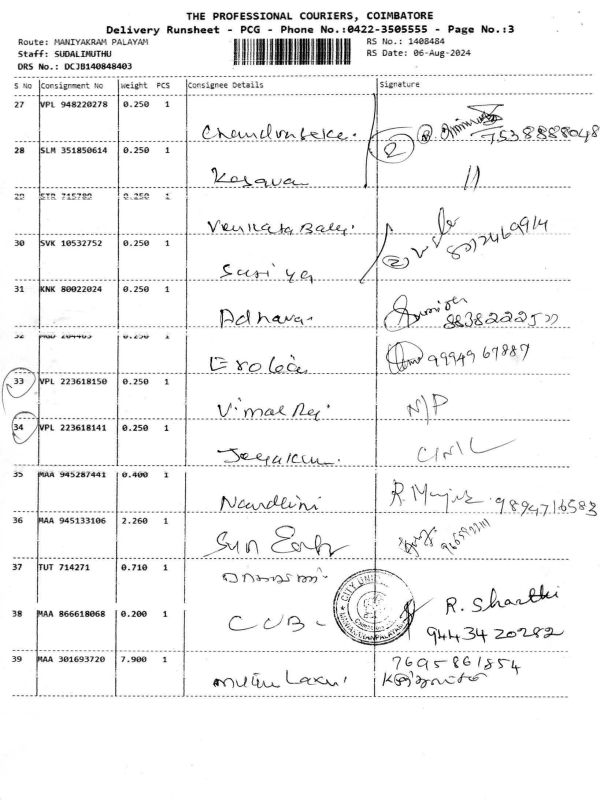 THE PROFESSIONAL COURIERS, COIMBATORE
Delivery Runsheet - PCG - Phone No.:0422-3505555 - Page No.:3
Route: MANIYAKRAM PALAYAM
RS No.: 1408484
Staff: SUDALIMUTHU
RS Date: 06-Aug-2024
DRS No.: DCJB140848403
S No Consignment No Weight PCS Consignee Details Signature
27 VPL 948220278 0.250 1
Chandrasekar 2 7538888048
28 SLM 351850614 0.250 1
11
29 STR 715789 0.250 1
Venkata Balaji
30 SVK 10532752 0.250 1
Suriya 2
31 KNK 80022024 0.250 1
Adhavan
32 0.250 1
9994967887
33 VPL 223618150 0.250 1
Vimal Raj N/P
34 VPL 223618141 0.250 1
Jeyakum
35 MAA 945287441 0.400 1
Nandhini 9894716583
36 MAA 945133106 2.260 1
37 TUT 714271 0.710 1
CITY UNION
38 MAA 866618068 0.200 1
CUB R. Sharthi
9443420282
39 MAA 301693720 7.900 1
Muthu Laxmi 7695861854